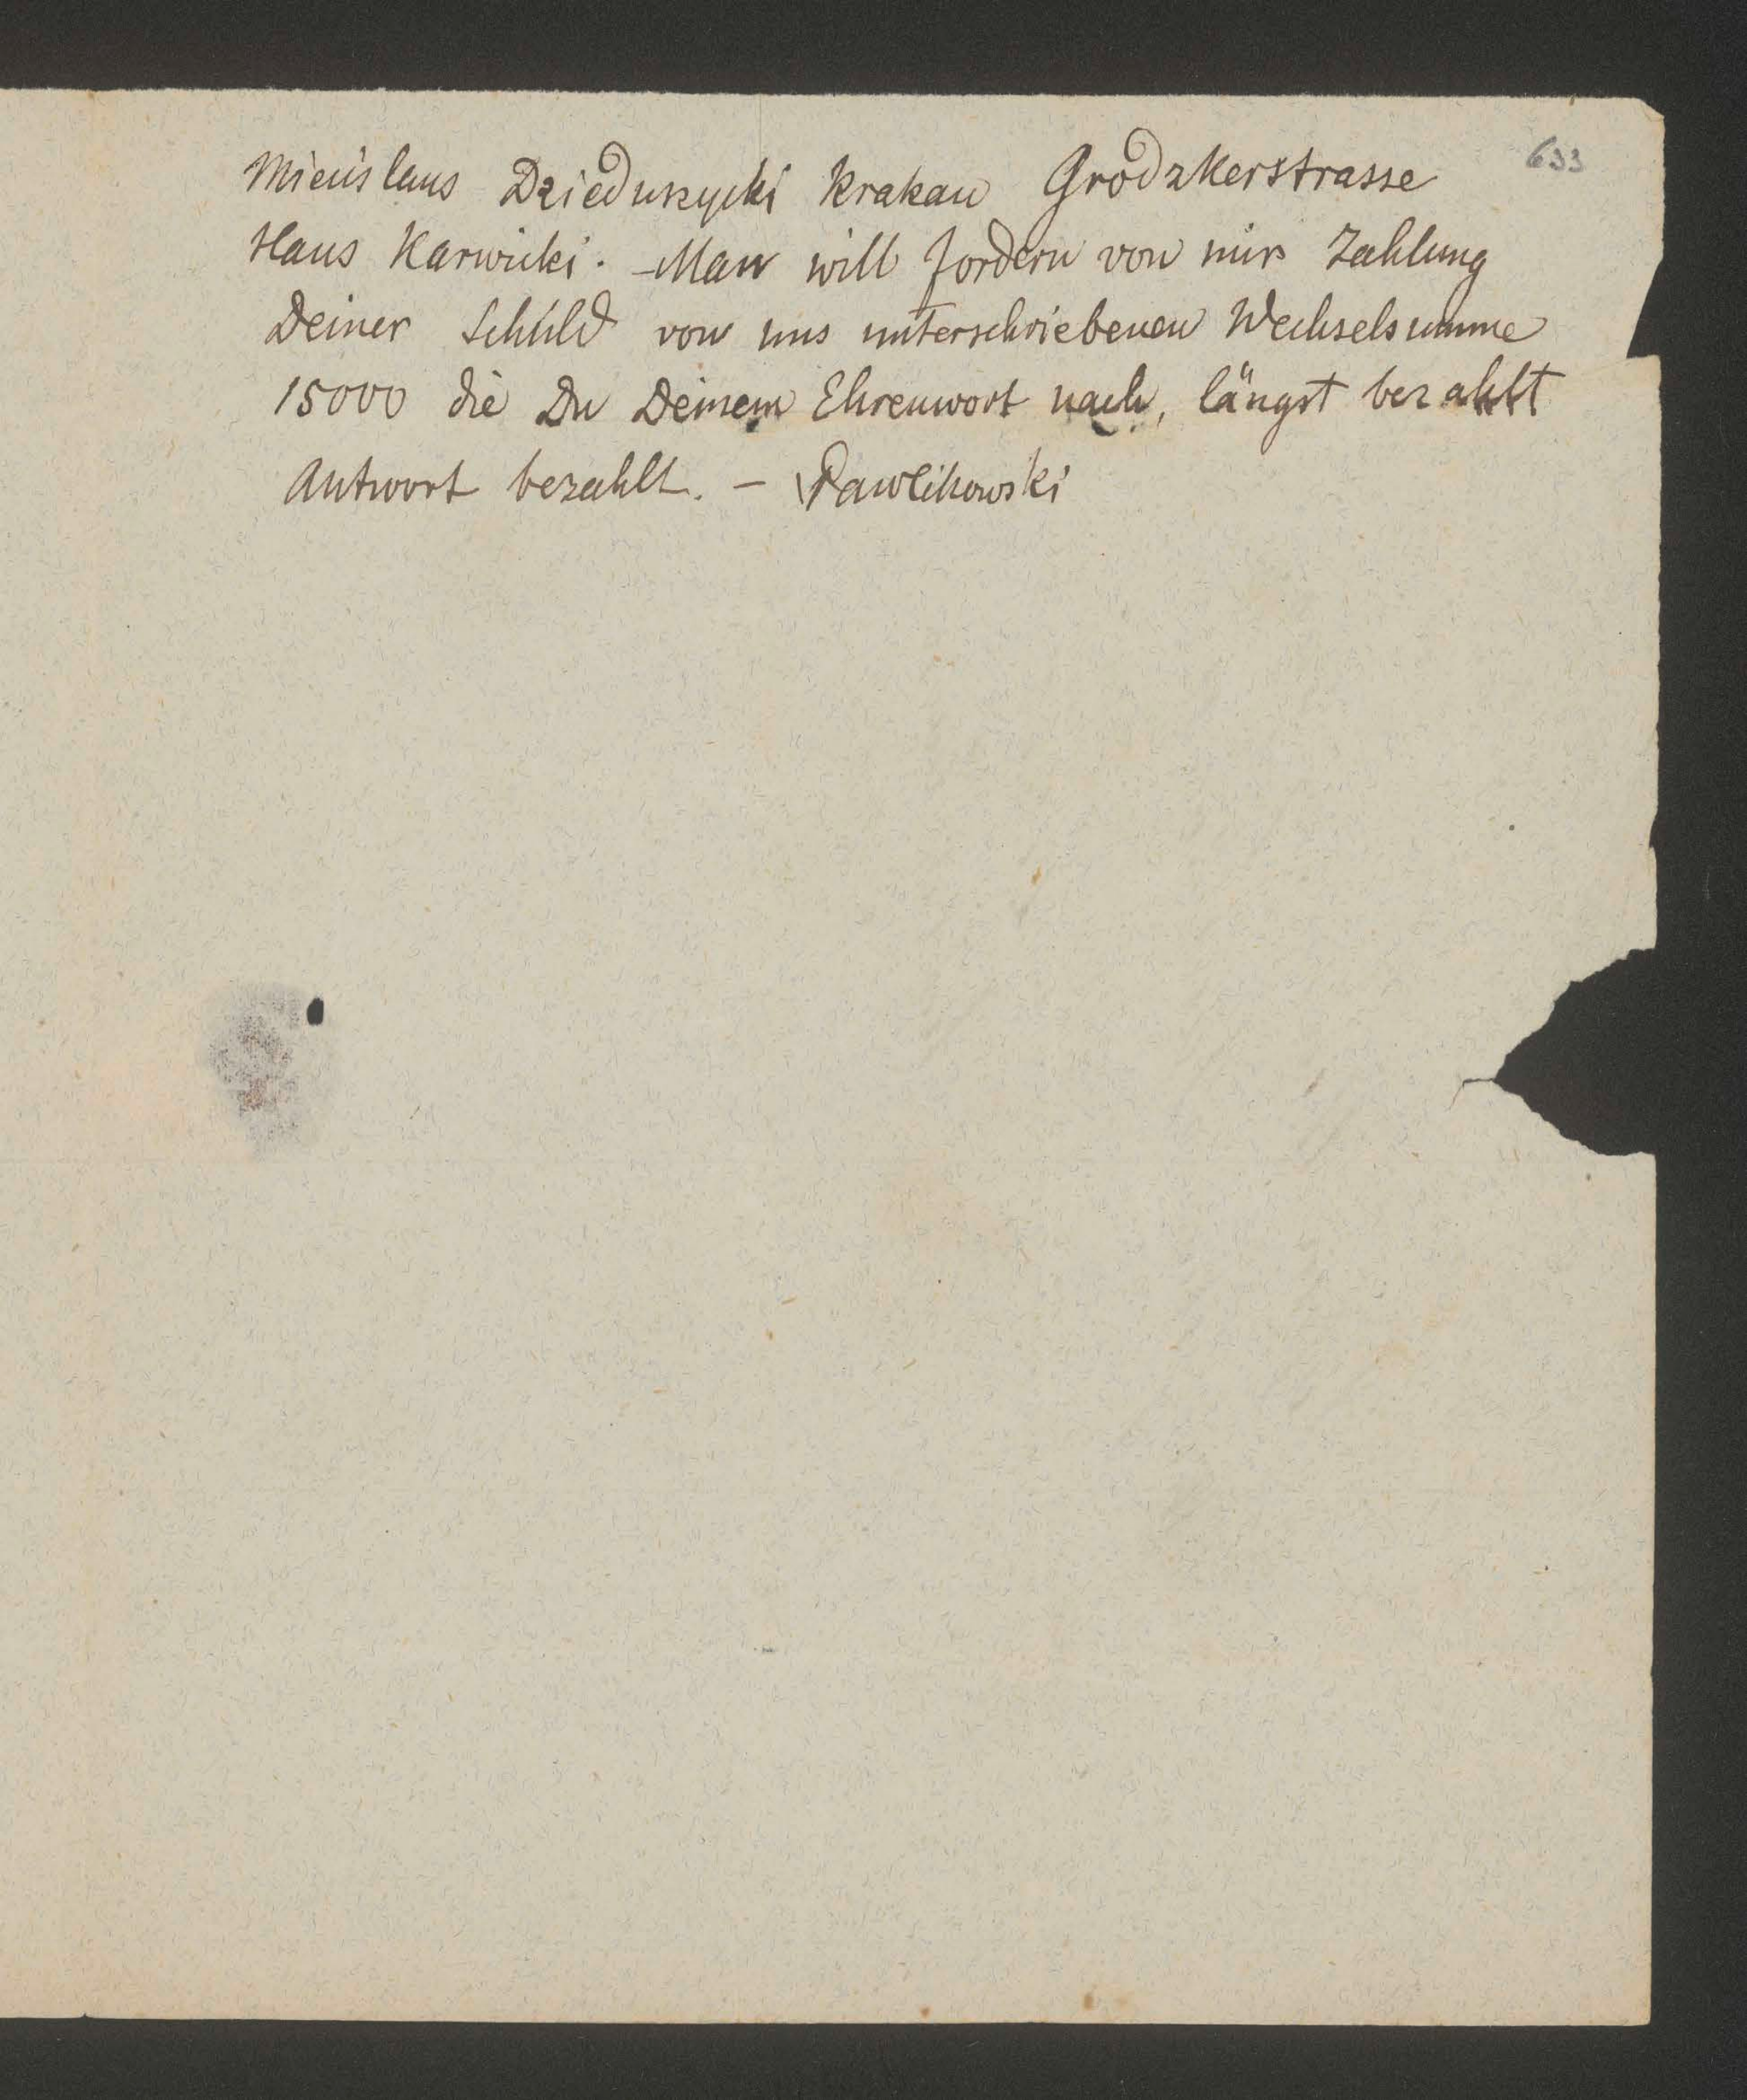 633
Miecislaus Dzieduszycki Krakau Grodzkerstrasse
Haus Karwicki. – Man will fordern von mir Zahlung
Deiner Schuld von uns unterschriebenen Wechselsumme
15000 die Du Deinem Ehrenwort nach, längst bezahlt
Antwort bezahlt. – Pawlikowski